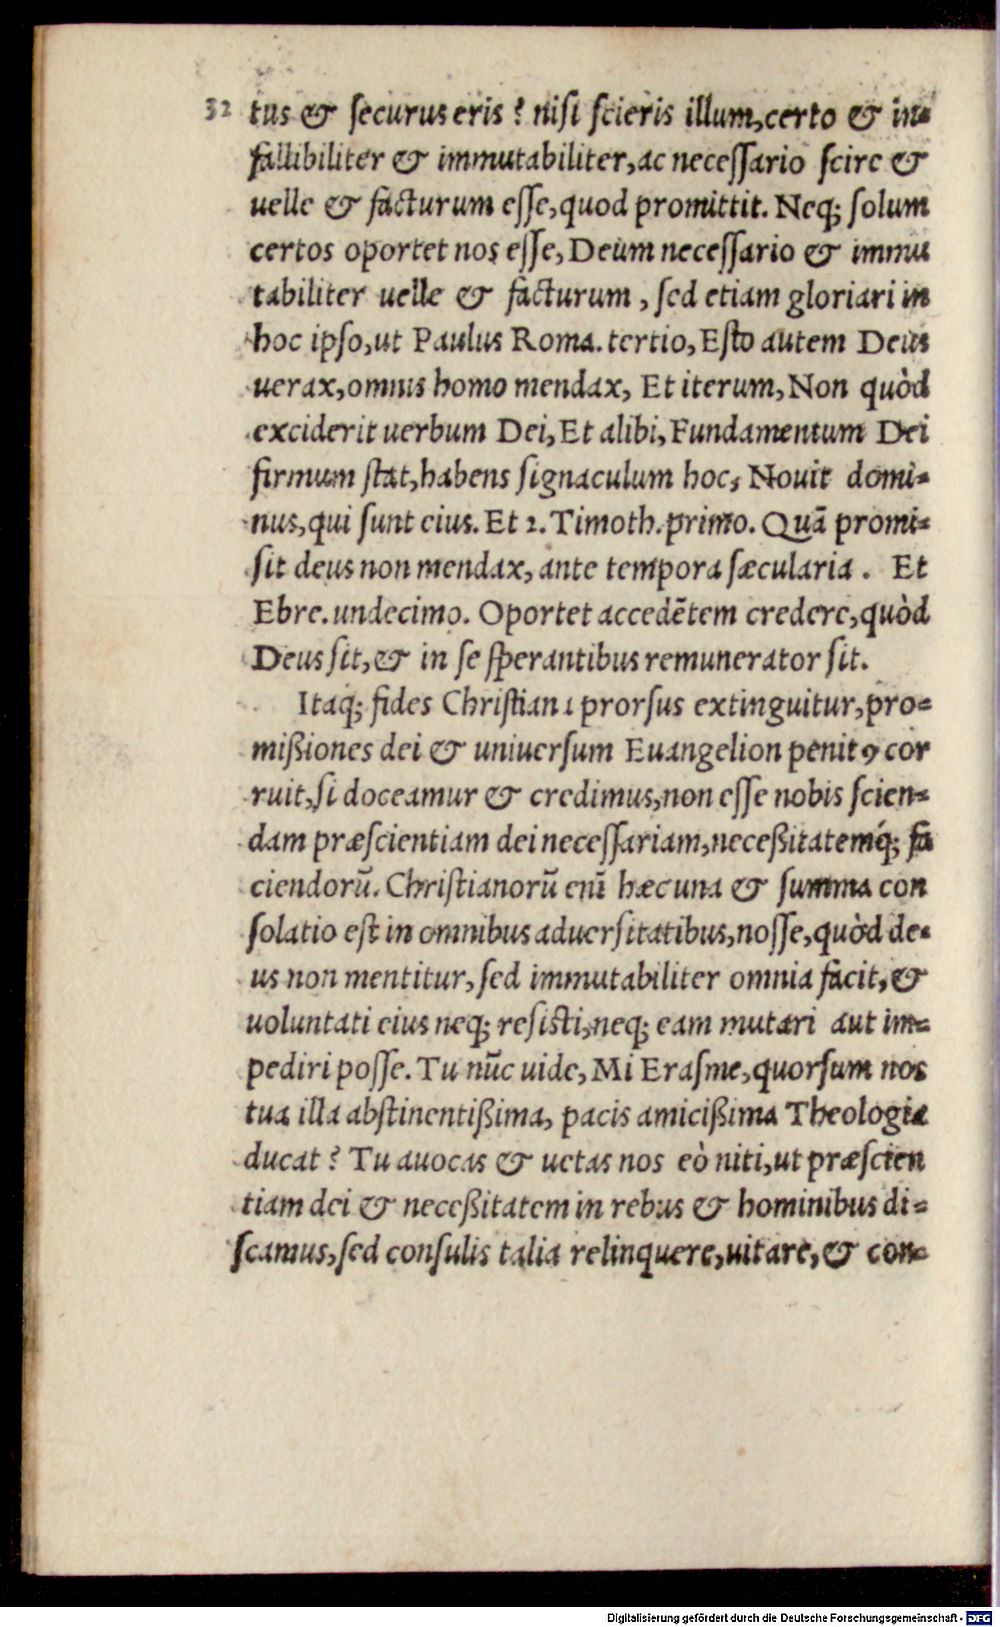 32 tus & ſecurus eris? niſi ſcieris illum, certo & in-
fallibiliter & immutabiliter, ac neceſſario ſcire &
uelle & facturum eſſe, quod promittit. Neq; ſolum
certos oportet nos eſſe, Deum neceſſario & immu
tabiliter uelle & facturum, ſed etiam gloriari in
hoc ipſo, ut Paulus Roma. tertio, Eſto autem Deus
uerax, omnis homo mendax, Et iterum, Non quòd
exciderit uerbum Dei, Et alibi, Fundamentum Dei
firmum ſtat, habens ſignaculum hoc, Nouit domi-
nus, qui ſunt eius. Et 2. Timoth. primo. Quã promi-
ſit deus non mendax, ante tempora ſæcularia. Et
Ebre. undecimo. Oportet accedẽtem credere, quòd
Deus ſit, & in ſe ſperantibus remunerator ſit.
Itaq; fides Chriſtiani prorſus extinguitur, pro-
mißiones dei & uniuerſum Euangelion penitꝰ cor
ruit, ſi doceamur & credimus, non eſſe nobis ſcien-
dam præſcientiam dei neceſſariam, neceßitatemq́; fa
ciendorũ. Chriſtianorũ enĩ hæc una & ſumma con
ſolatio eſt in omnibus aduerſitatibus, noſſe, quòd de-
us non mentitur, ſed immutabiliter omnia facit, &
uoluntati eius neq; reſiſti, neq; eam mutari aut im-
pediri poſſe. Tu nũc uide, Mi Eraſme, quorſum nos
tua illa abſtinentißima, pacis amicißima Theologia
ducat? Tu auocas & uetas nos eò niti, ut præſcien
tiam dei & neceßitatem in rebus & hominibus di-
ſcamus, ſed conſulis talia relinquere, uitare, & con-
Digitalisierung gefördert durch die Deutsche Forschungsgemeinschaft - DFG